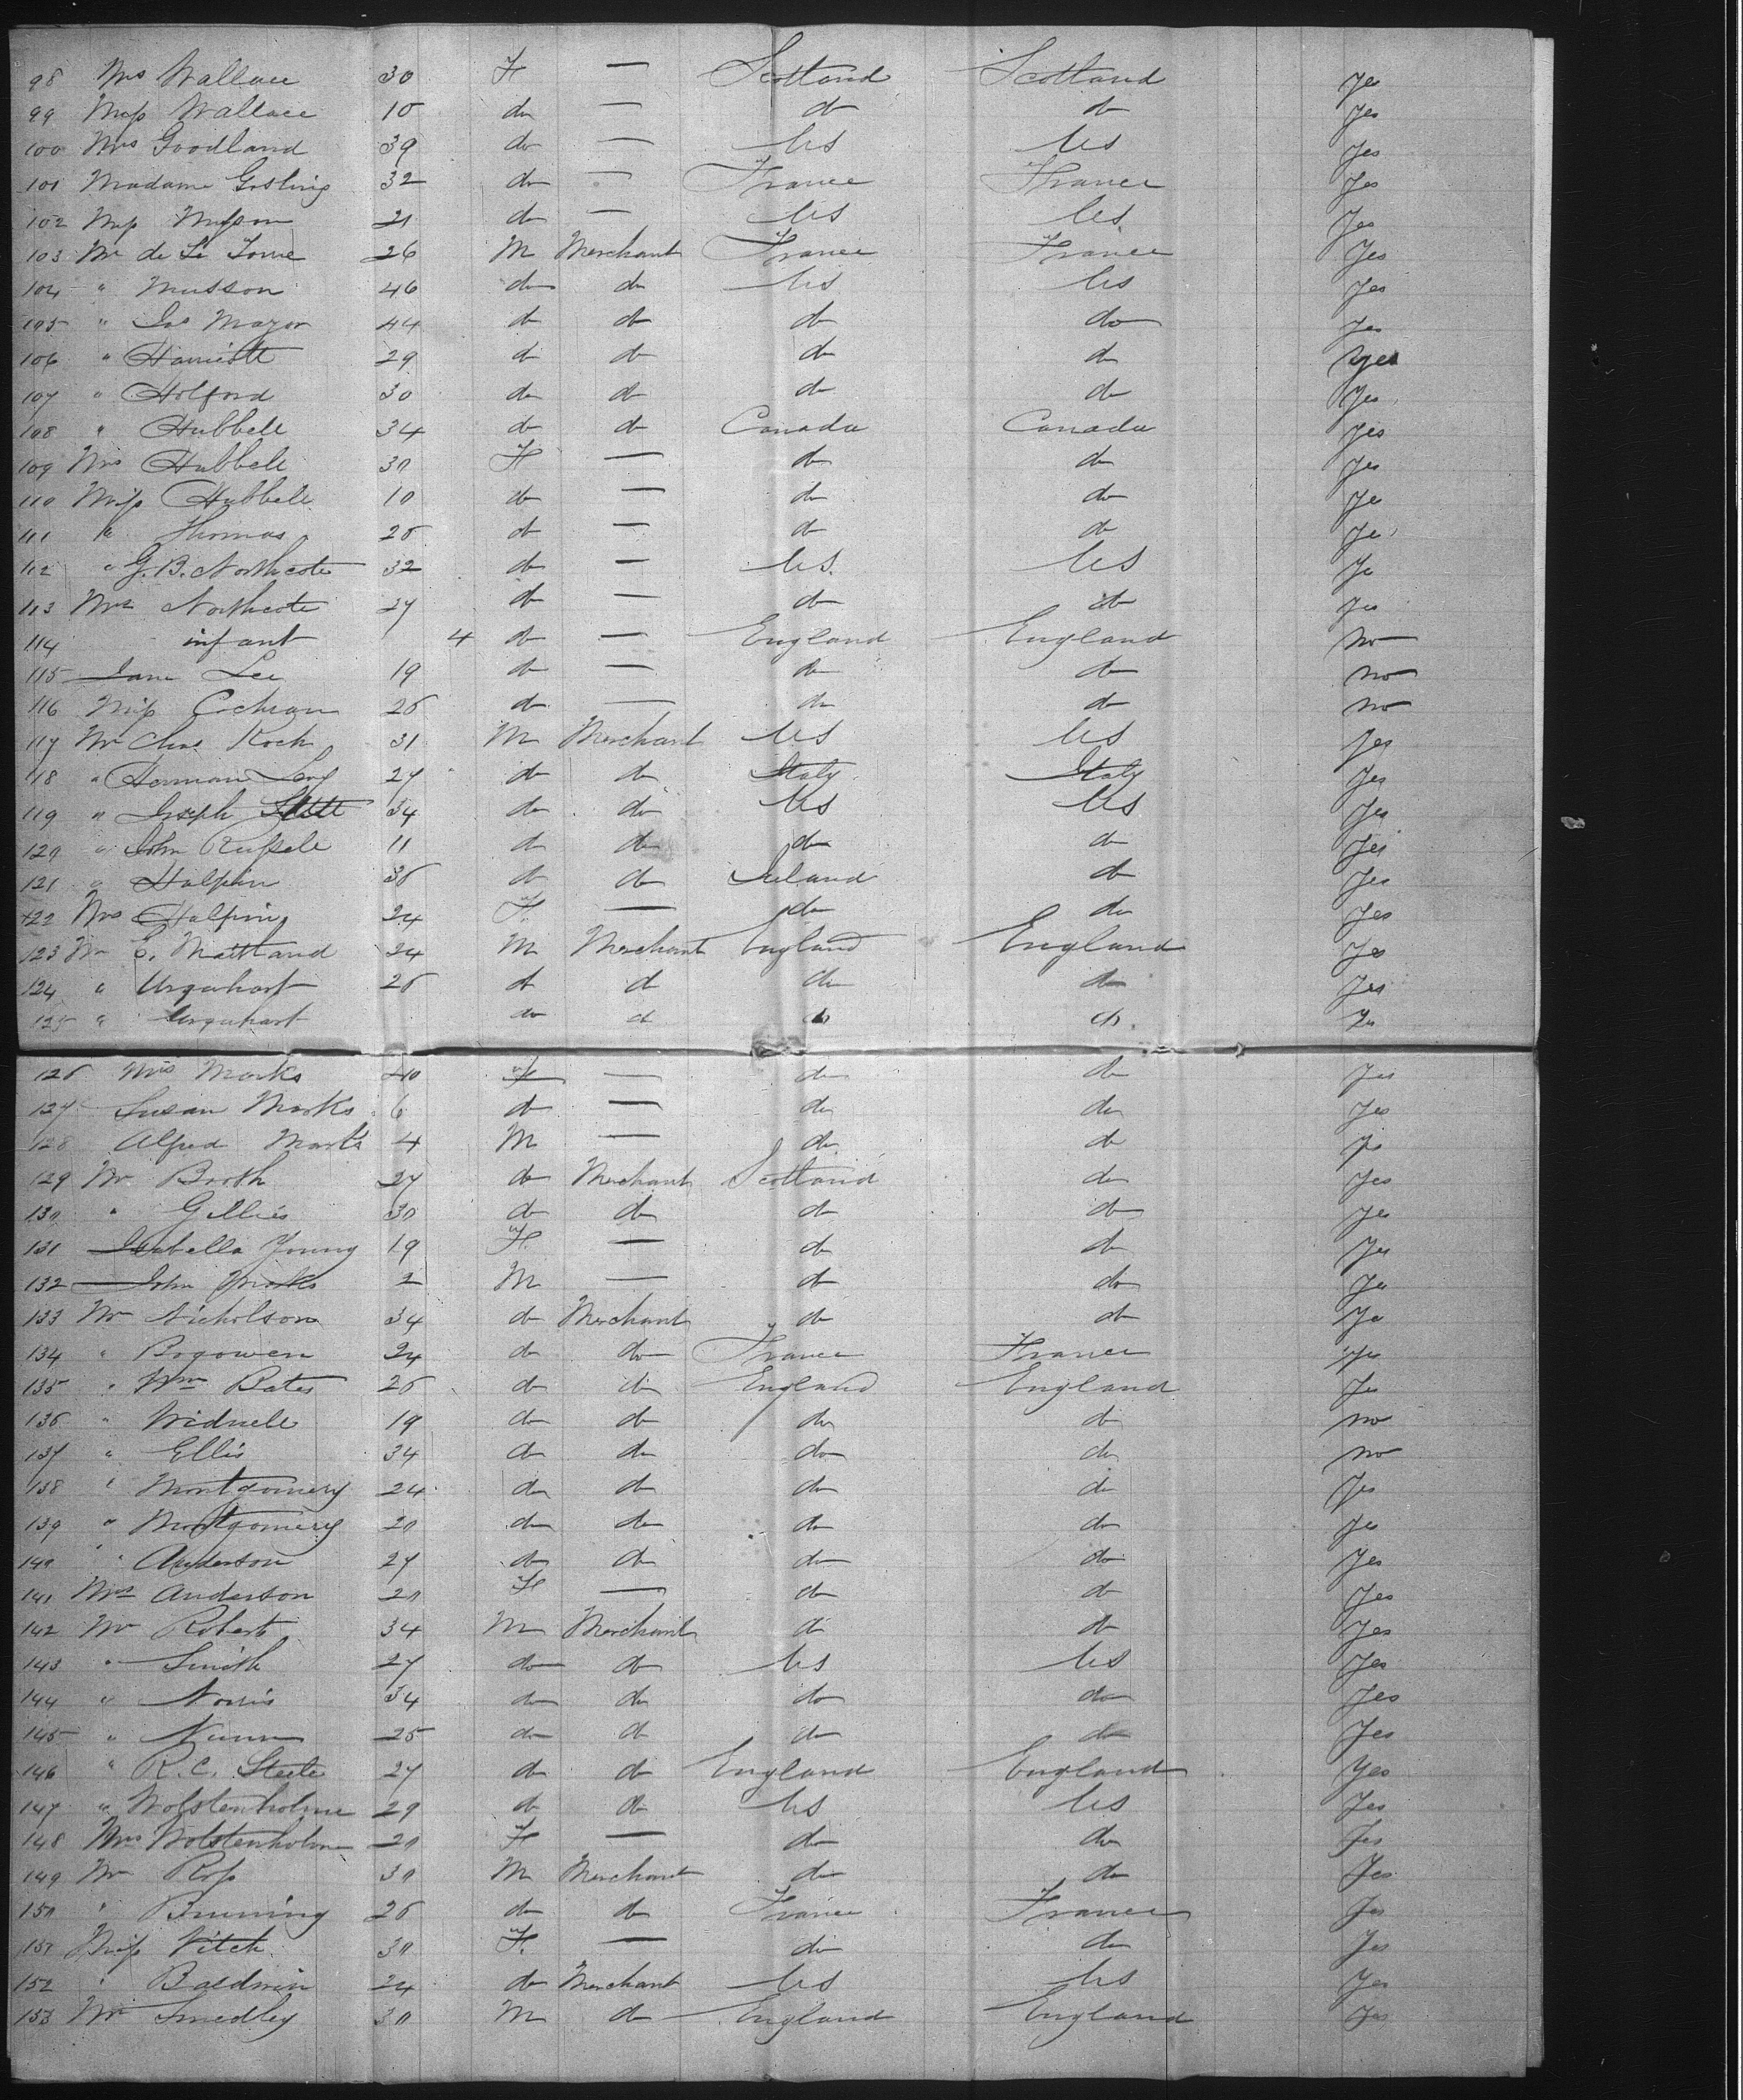 98 Mrs Wallace 30 F — Scotland Scotland Yes
99 Miss Wallace 10 do — do do Yes
100 Mrs Goodland 39 do — US US Yes
101 Madame Gosling 32 do — France France Yes
102 Miss 21 do — US US Yes
103 Mr de La 26 M Merchant France France Yes
104 " Musson 46 do do US US Yes
105 " Mazor 44 do do do do Yes
106 " Harriott 29 do do do do Yes
107 " Holford 30 do do do do Yes
108 " Hubbell 34 do do Canada Canada Yes
109 Mrs Hubbell 30 F — do do Yes
110 Miss Hubbell 10 do — do do Yes
111 " Thomas 26 do — do do Yes
112 " G. B. Northcote 32 do — US US Yes
113 Mrs Northcote 27 do — do do Yes
114 infant 4 do — England England No
115 Jane Lee 19 do — do do No
116 Miss Cochran 26 do — do do No
117 Mr Chas Koch 31 M Merchant US US Yes
118 " Herman 27 do do Italy Italy Yes
119 " Joseph 34 do do US US Yes
120 " John Russell 11 do do do do Yes
121 " Halpin 36 do do Ireland do Yes
122 Mrs Halpin 24 F — do do Yes
123 Mr E. Maitland 24 M Merchant England England Yes
124 " Urquhart 26 do do do do Yes
125 " Urquhart do do do do Yes
126 Mrs Marks 40 F — do do Yes
127 Susan Marks 6 do — do do Yes
128 Alfred Marks 4 M — do do Yes
129 Mr Booth 27 do Merchant Scotland do Yes
130 " Gillies 30 do do do do Yes
131 Isabella Young 19 F — do do Yes
132 John Marks 2 M — do do Yes
133 Mr Nicholson 34 do Merchant do do Yes
134 " Bogowen 24 do do France France Yes
135 " Wm Bates 26 do do England England Yes
136 " Widnell 19 do do do do No
137 " Ellis 34 do do do do No
138 " Montgomery 24 do do do do Yes
139 " Montgomery 20 do do do do Yes
140 " Anderson 27 do do do do Yes
141 Mrs Anderson 20 F — do do Yes
142 Mr Roberts 34 M Merchant do do Yes
143 " Smith 27 do do US US Yes
144 " Norris 34 do do do do Yes
145 " Nunn 25 do do do do Yes
146 " R. C. Steele 27 do do England England Yes
147 " Wolstenholme 29 do do US US Yes
148 Mrs Wolstenholme 20 F — do do Yes
149 Mr Ross 30 M Merchant do do Yes
150 " Bruning 26 do do France France Yes
151 Miss Vitch 30 F — do do Yes
152 " Baldwin 24 do Merchant US US Yes
153 Mr Smedley 30 M do England England Yes